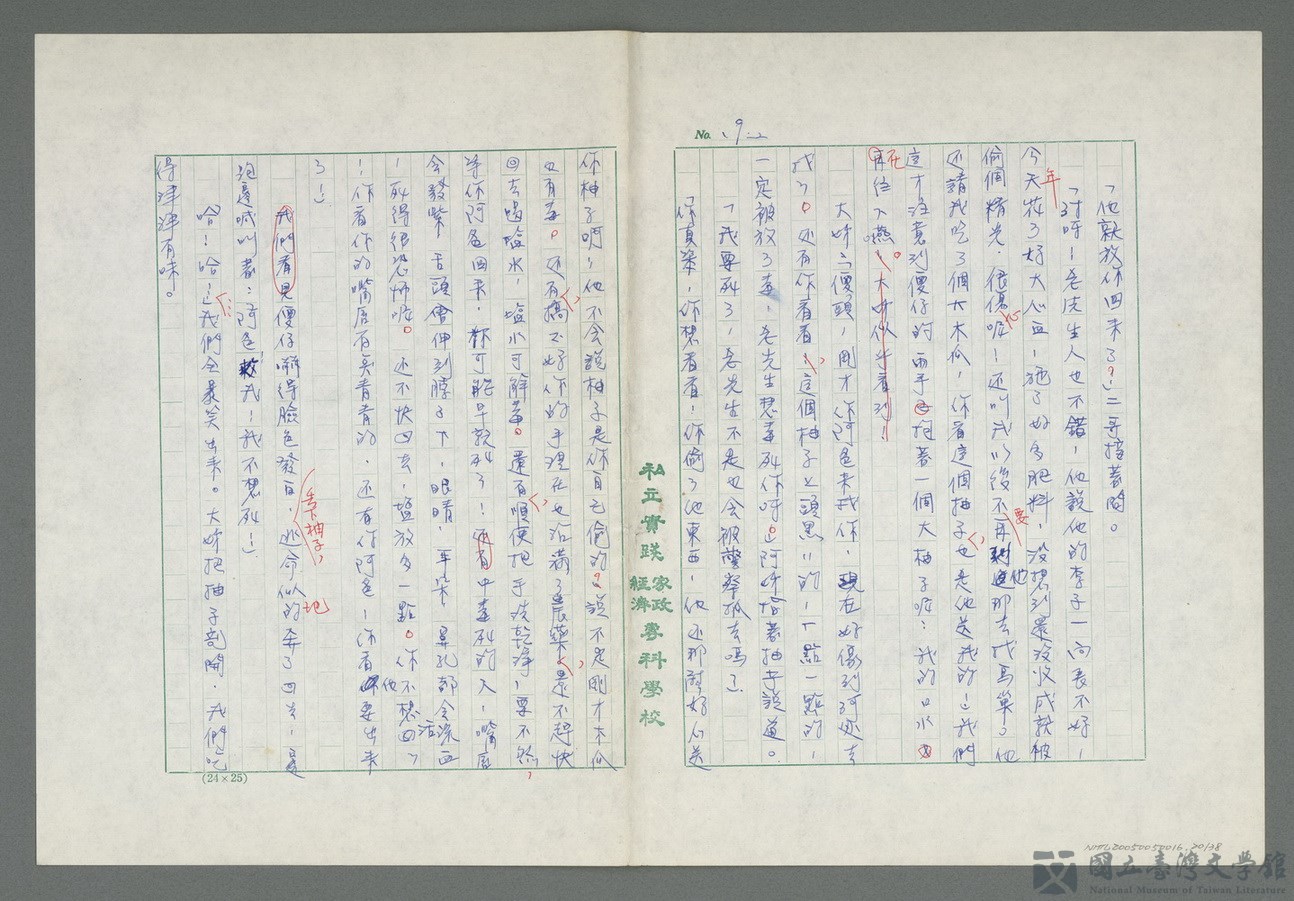 No. 19
「他就放你回來了?」二哥搶著問。
「討呀!老先生人也不錯,他說他的李子一向長不好,
今年花了好大心血!施了好多肥料!沒想到還沒收成就被
偷個精光,很傷心呢!還叫我以後不要再到他那去找鳥巢。他
還請我吃了個大木瓜,你看這個柚子也是他送我的!」我們
這才注意到傻仔的兩手抱著一個大柚子呢:我的口水
再往下嚥!大姊似乎看到!
大姊:「傻頭,剛才你阿爸來找你,現在好像到河邊去
找了。還有你看看!這個柚子上頭黑黑的!一點一點的!
一定被放了毒!老先生想毒死你呀。」阿姊搶著柚子說道。
「我要死了!老先生不是也會被警察抓去嗎」
「你真笨!你想看看!你偷了他東西!他還那麼好心送
私立實踐家政經濟專科學校
你柚子啊!他不會說柚子是你自己偷的?說不定剛才木瓜
也有毒。還有,搞不好你的手現在也沾滿了農藥,還不趕快
回去喝鹽水,鹽水可解毒。還有,順便把手洗乾淨!要不然,
等你阿爸回來,都可能早就死了!還有中毒死的人!嘴唇
會發紫!舌頭會伸到脖子下,眼睛、耳朵、鼻孔都會流血
!死得很恐怖呢。還不快回去,鹽放多一點。你不想活了
!你看你的嘴唇有點青青的,還有你阿爸!你看他要出來
了!」
我們看見傻仔嚇得臉色發白,丟下柚子,逃命似地奔了回去!還
跑邊喊叫著:「阿爸救我!我不想死!」
「哈!哈!」我們全都笑出來。大姊把柚子剖開,我們吃
得津津有味。
(24×25)
NMTL20050050016 20/38
國立臺灣文學館
National Museum of Taiwan Literature